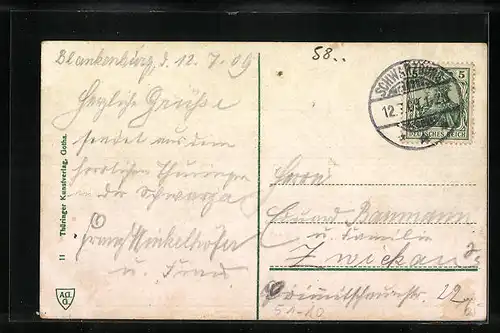 58..
Blankenburg, d. 12.7.09
Herzliche Grüße
sendet aus dem
herrlichen Thüringen
in der Schwarza
Franz Winkelhöfer
u. Frau
11 Thüringer Kunstverlag, Gotha.
A.C.L.
G.
SCHWARZBURG
12.7.09
5
DEUTSCHES REICH
Herrn
Eduard Baumann
u. Familie
Zwickau
22